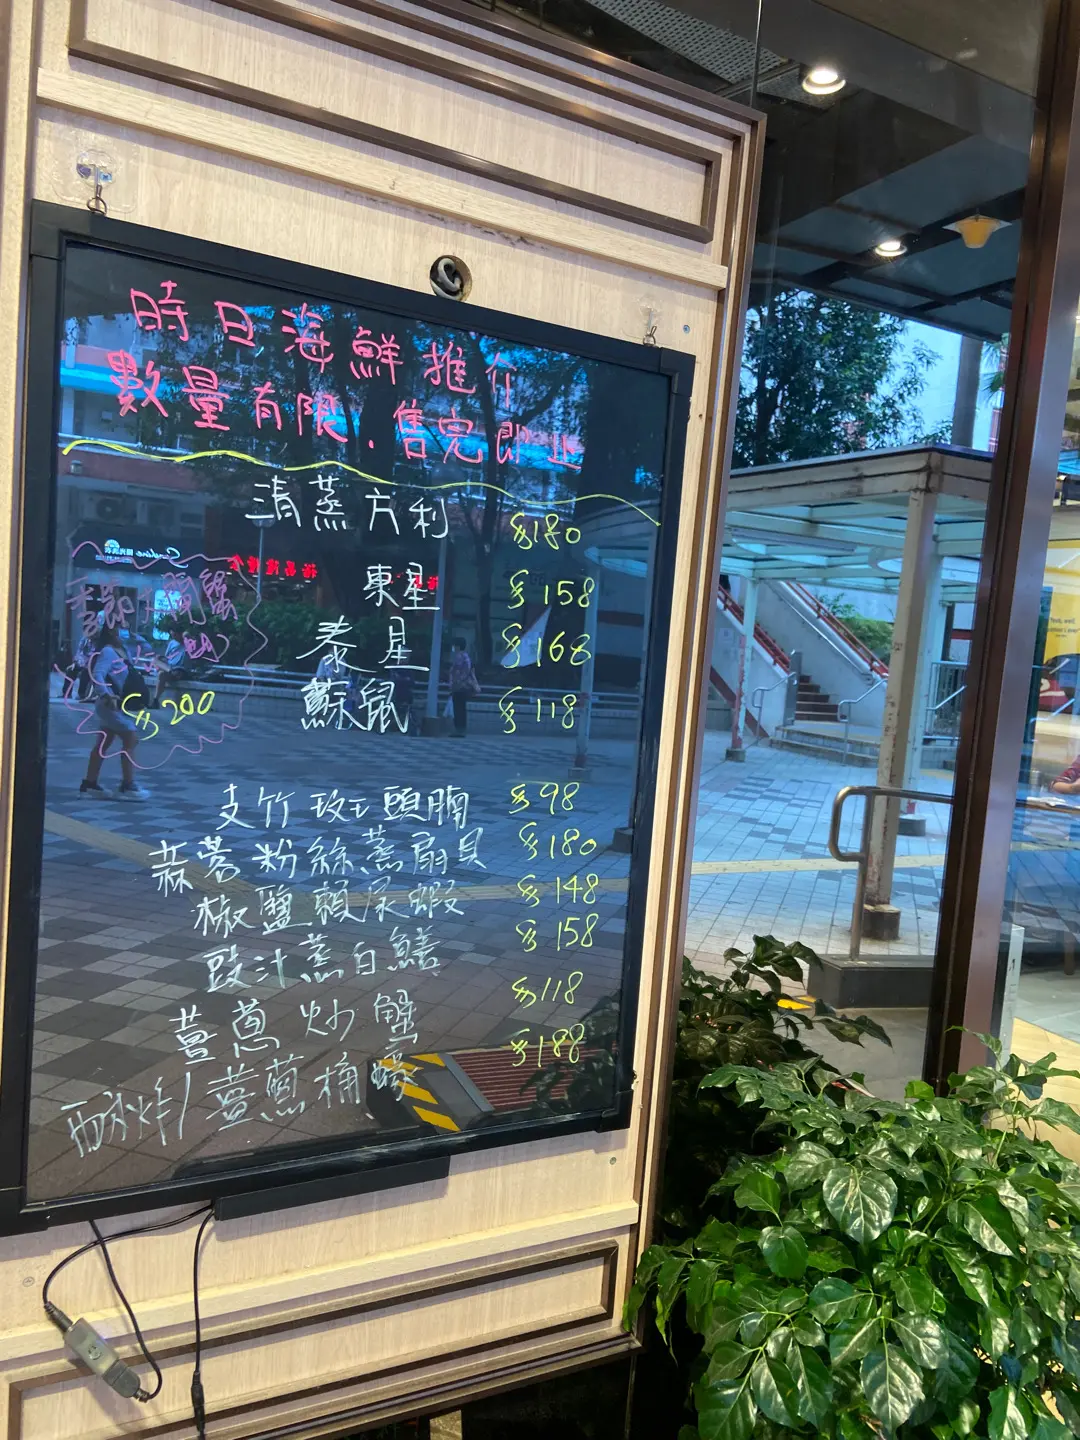 時日海鮮推介
數量有限.售完即止
清蒸方利 $180
東星 $158
泰星 $168
蘇鼠 $118
$200
支竹斑頭腩 $98
蒜蓉粉絲蒸扇貝 $180
椒鹽賴尿蝦 $148
豉汁蒸白鱔 $158
薑蔥炒蟹 $118
酥炸/薑蔥桶蠔 $188
Sunshine